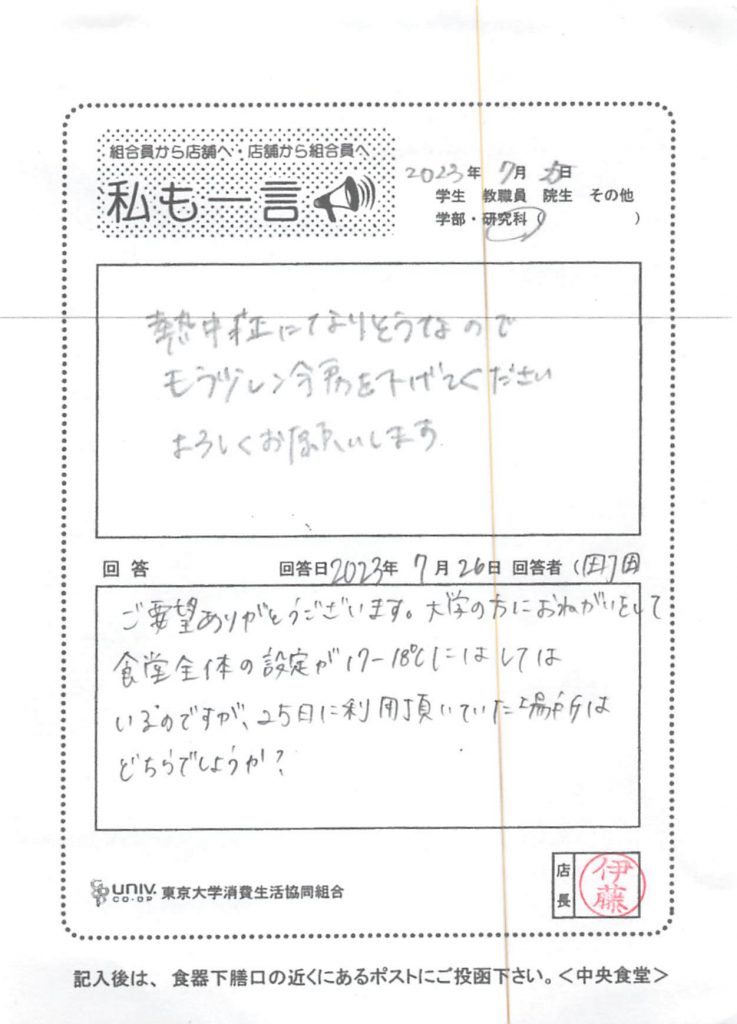 組合員から店舗へ・店舗から組合員へ
私も一言
2023年 7月 25日
学生 教職員 院生 その他
学部・研究科( )
熱中症になりそうなので
もう少し冷房を下げてください
よろしくお願いします
回答 回答日2023年 7月26日 回答者(
ご要望ありがとうございます。大学の方におねがいをして
食堂全体の設定が17-18℃にはしては
いるのですが、25日に利用頂いていた場所は
どちらでしょうか?
UNIV. CO-OP 東京大学消費生活協同組合
店長 伊藤
記入後は、食器下膳口の近くにあるポストにご投函下さい。<中央食堂>